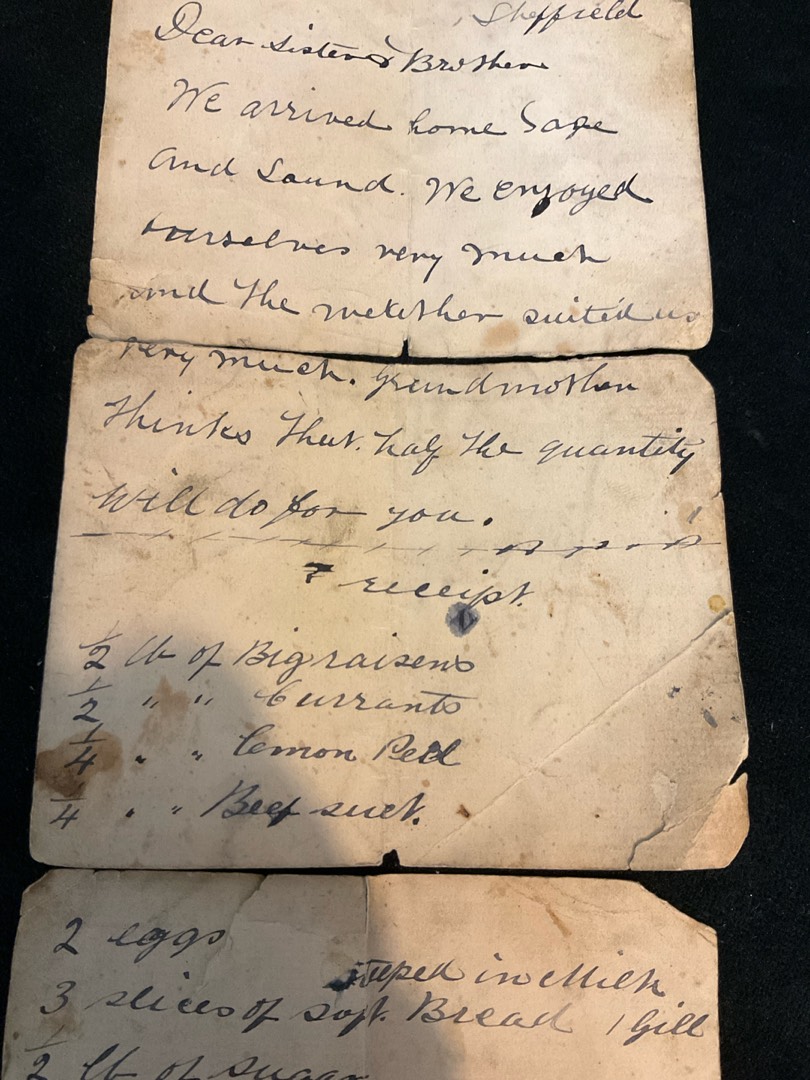 Sheffield
Dear Sister & Brother
We arrived home Safe
and Sound. We enjoyed
ourselves very much
and the weather suited us
very much. Grandmother
thinks that half the quantity
will do for you.
receipt.
1/2 lb of Big raisens
1/2 " " Currants
1/4 " " lemon Peel
1/4 " " Beef suet.
2 eggs
steeped in Milk
3 slices of soft Bread 1 Gill
1/2 lb of sugar